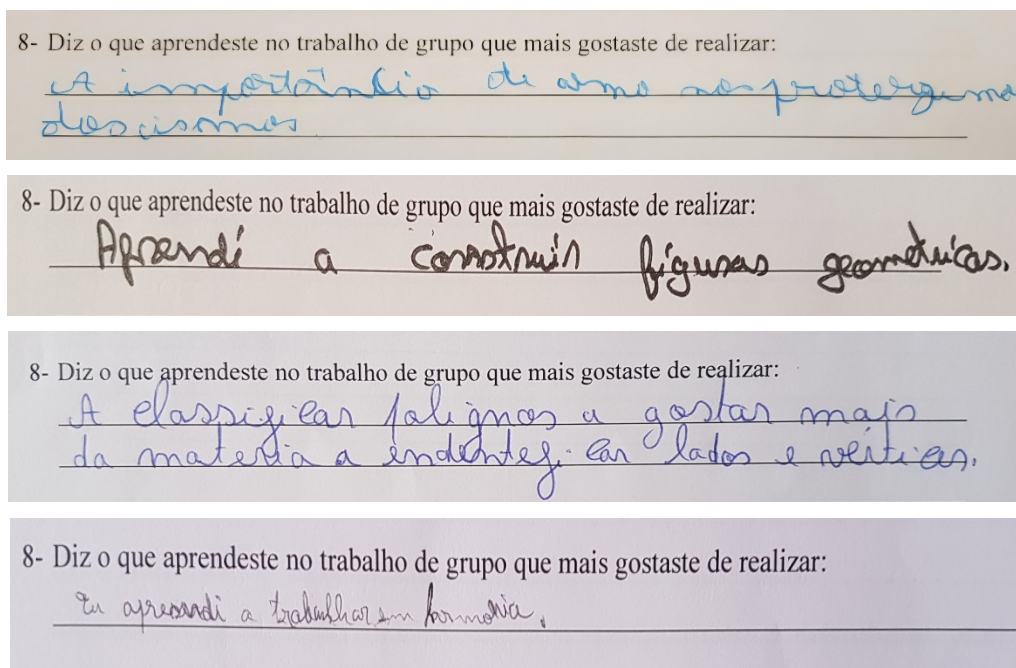 8- Diz o que aprendeste no trabalho de grupo que mais gostaste de realizar:
A importância de como nos protegermo
dos cismos
8- Diz o que aprendeste no trabalho de grupo que mais gostaste de realizar:
Aprendi a construir figuras geometricas.
8- Diz o que aprendeste no trabalho de grupo que mais gostaste de realizar:
A classificar a gostar mais
da materia a endentificar lados e vértices.
8- Diz o que aprendeste no trabalho de grupo que mais gostaste de realizar:
Eu aprendi a trabalhar em harmonia.